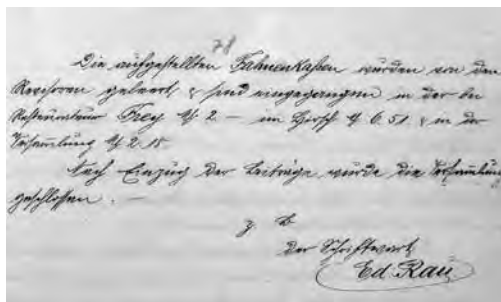 78
Die aufgestellten Fahnenkassen wurden von den
Revisoren geleert & sind eingegangen in der
Restaurateur Frey M 2. – im Hirsch M 6.51 & in der
Versammlung M 2.15
Nach Einzug der Beiträge wurde die Versammlung
geschlossen. –
Der Schriftwart
Ed. Rau